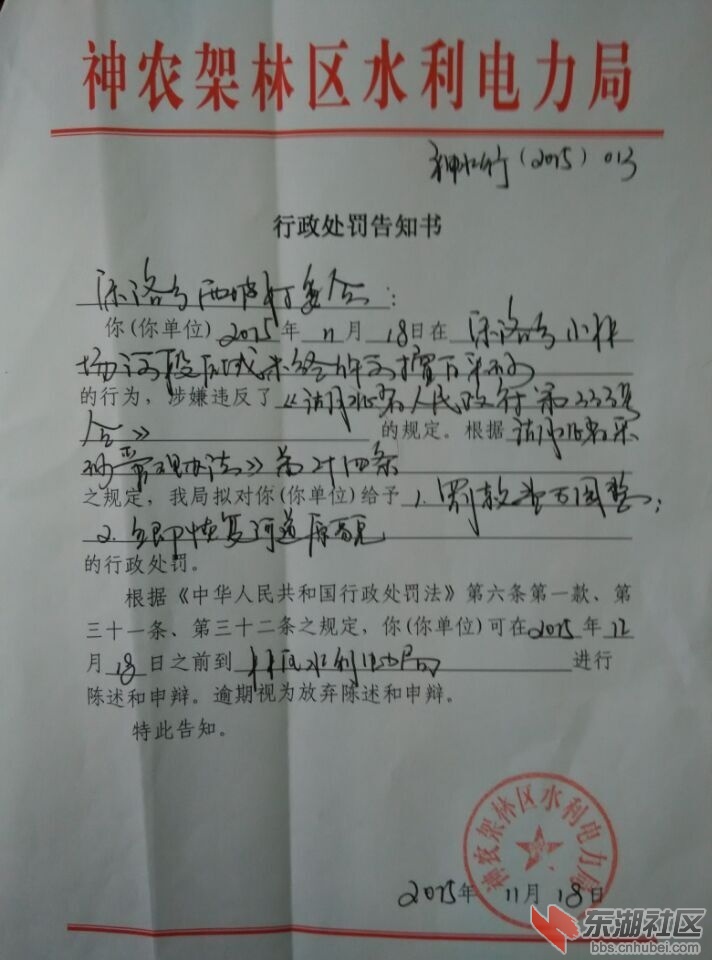 神农架林区水利电力局
神水行(2015)013
行政处罚告知书
宋洛乡西坡村委会:
你(你单位)2015年11月18日在宋洛乡小林
场河段区域未经许可擅自采砂
的行为,涉嫌违反了《湖北省人民政府第333号
令》的规定。根据湖北省采
砂管理办法》第廿四条
之规定,我局拟对你(你单位)给予1.罚款壹万圆整;
2.立即恢复河道原貌
的行政处罚。
根据《中华人民共和国行政处罚法》第六条第一款、第
三十一条、第三十二条之规定,你(你单位)可在2015年12
月18日之前到林区水利电力局进行
陈述和申辩。逾期视为放弃陈述和申辩。
特此告知。
神农架林区水利电力局
2015年11月18日
东湖社区
bbs.cnhubei.com